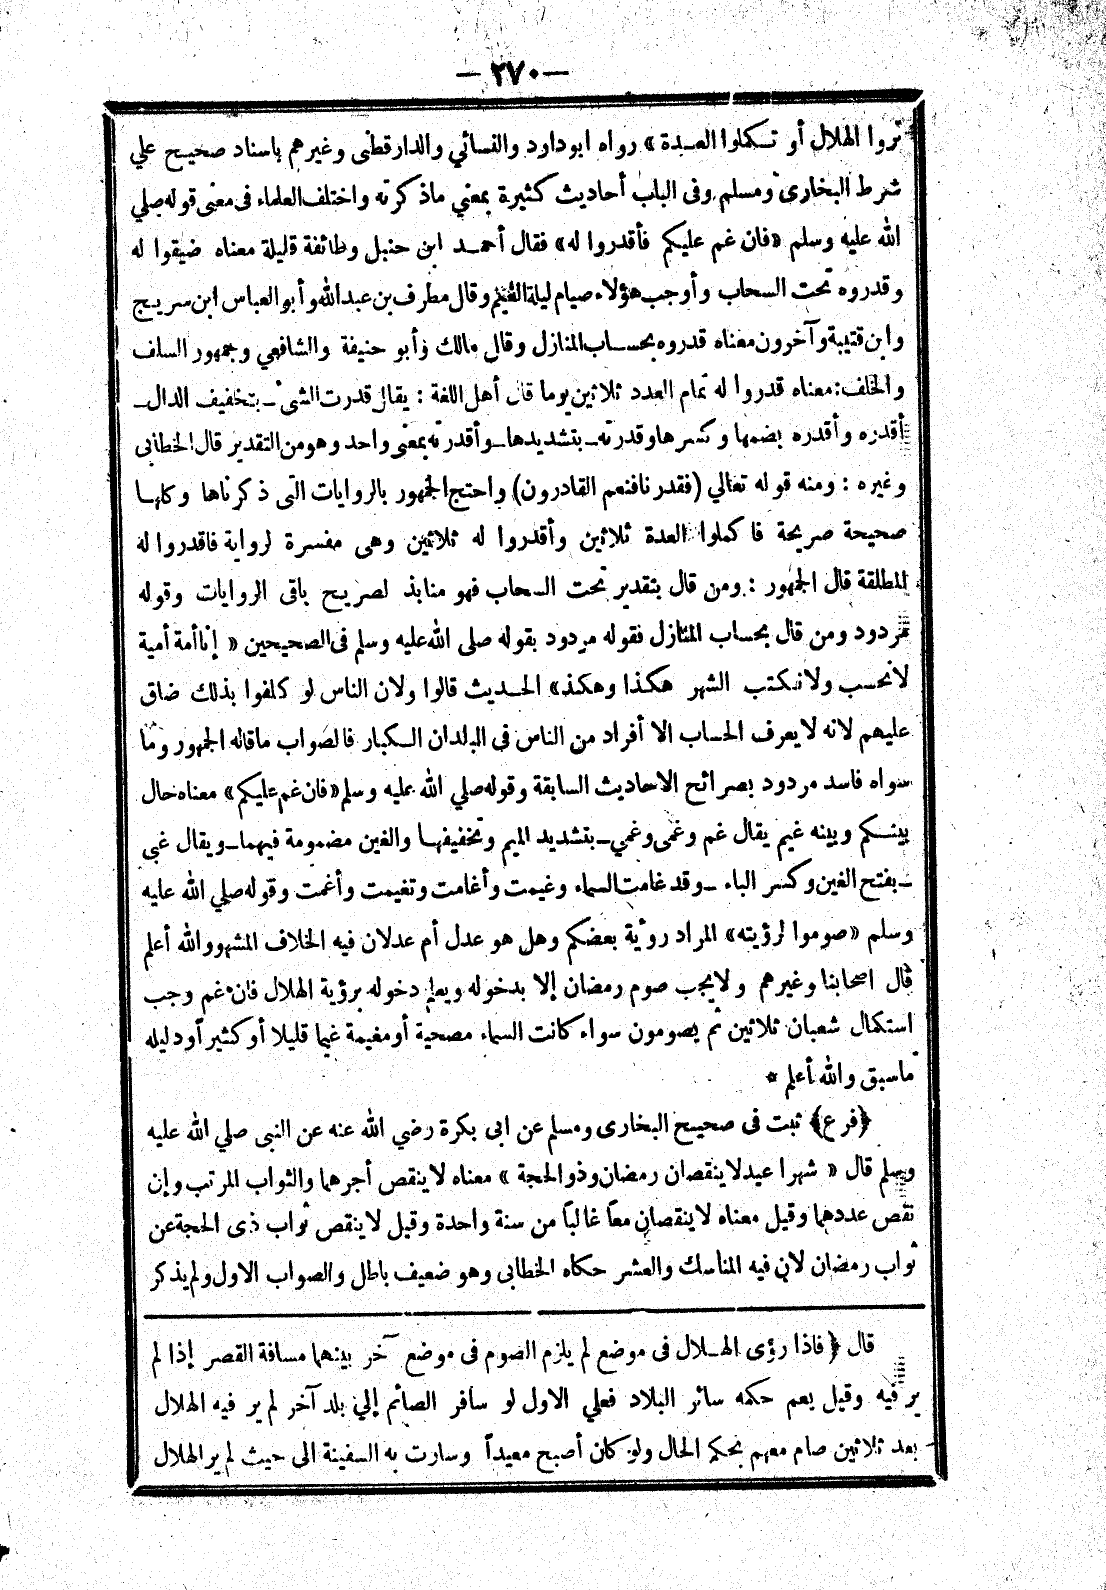 — ٢٧٠ —
تروا الهلال أو تكملوا العدة » رواه ابوداود والنسائي والدارقطنى وغيرهم باسناد صحيح علي
شرط البخارى ومسلم وفى الباب أحاديث كثيرة بمعني ماذكرته واختلف العلماء فى معنى قوله صلي
الله عليه وسلم «فان غم عليكم فأقدروا له» فقال أحمد ابن حنبل وطائفة قليلة معناه ضيقوا له
وقدروه تحت السحاب وأوجب هؤلاء صيام ليلة الغيم وقال مطرف بن عبد الله وأبو العباس ابن سريج
وابن قتيبة وآخرون معناه قدروه بحساب المنازل وقال مالك وأبو حنيفة والشافعي وجمهور السلف
والخلف: معناه قدروا له تمام العدد ثلاثين يوما قال أهل اللغة : يقال قدرت الشئ ـ بتخفيف الدال ـ
أقدره وأقدره بضمها وكسرها وقدرته ـ بتشديدها ـ وأقدرته بمعنى واحد وهو من التقدير قال الخطابى
وغيره : ومنه قوله تعالي (فقدرنا فنعم القادرون) واحتج الجمهور بالروايات التى ذكرناها وكلها
صحيحة صريحة فاكملوا العدة ثلاثين وأقدروا له ثلاثين وهى مفسرة لرواية فاقدروا له
المطلقة قال الجمهور : ومن قال بتقدير تحت السحاب فهو منابذ لصريح باقى الروايات وقوله
مردود ومن قال بحساب المنازل فقوله مردود بقوله صلى الله عليه وسلم فى الصحيحين « إنا أمة أمية
لا نحسب ولا نكتب الشهر هكذا وهكذ» الحديث قالوا ولان الناس لو كلفوا بذلك ضاق
عليهم لانه لا يعرف الحساب الا أفراد من الناس في البلدان الكبار فالصواب ماقاله الجمهور وما
سواه فاسد مردود بصرائح الاحاديث السابقة وقوله صلي الله عليه وسلم «فان غم عليكم» معناه حال
بينكم وبينه غيم يقال غم وغمى وغمي ـ بتشديد الميم وتخفيفها والغين مضمومة فيهما ـ ويقال غبى
ـ بفتح الغين وكسر الباء ـ وقد غامت السماء وغيمت وأغامت وتغيمت وأغمت وقوله صلي الله عليه
وسلم «صوموا لرؤيته» المراد رؤية بعضكم وهل هو عدل أم عدلان فيه الخلاف المشهور والله أعلم
قال اصحابنا وغيرهم ولا يجب صوم رمضان إلا بدخوله ويعلم دخوله برؤية الهلال فان غم وجب
استكمال شعبان ثلاثين ثم يصومون سواء كانت السماء مصحية أو مغيمة غيما قليلا أو كثيرا ودليله
ماسبق والله أعلم *
﴿فرع﴾ ثبت فى صحيح البخارى ومسلم عن ابى بكرة رضي الله عنه عن النبى صلي الله عليه
وسلم قال « شهرا عيد لا ينقصان رمضان وذو الحجة » معناه لا ينقص أجرهما والثواب المرتب وإن
نقص عددهما وقيل معناه لا ينقصان معاً غالباً من سنة واحدة وقيل لا ينقص ثواب ذى الحجة عن
ثواب رمضان لان فيه المناسك والعشر حكاه الخطابى وهو ضعيف باطل والصواب الاول ولم يذكر
قال ﴿ فاذا رؤى الهلال فى موضع لم يلزم الصوم فى موضع آخر بينهما مسافة القصر إذا لم
ير فيه وقيل يعم حكمه سائر البلاد فعلي الاول لو سافر الصائم إلي بلد آخر لم ير فيه الهلال
بعد ثلاثين صام معهم بحكم الحال ولو كان أصبح معيداً وسارت به السفينة الى حيث لم ير الهلال